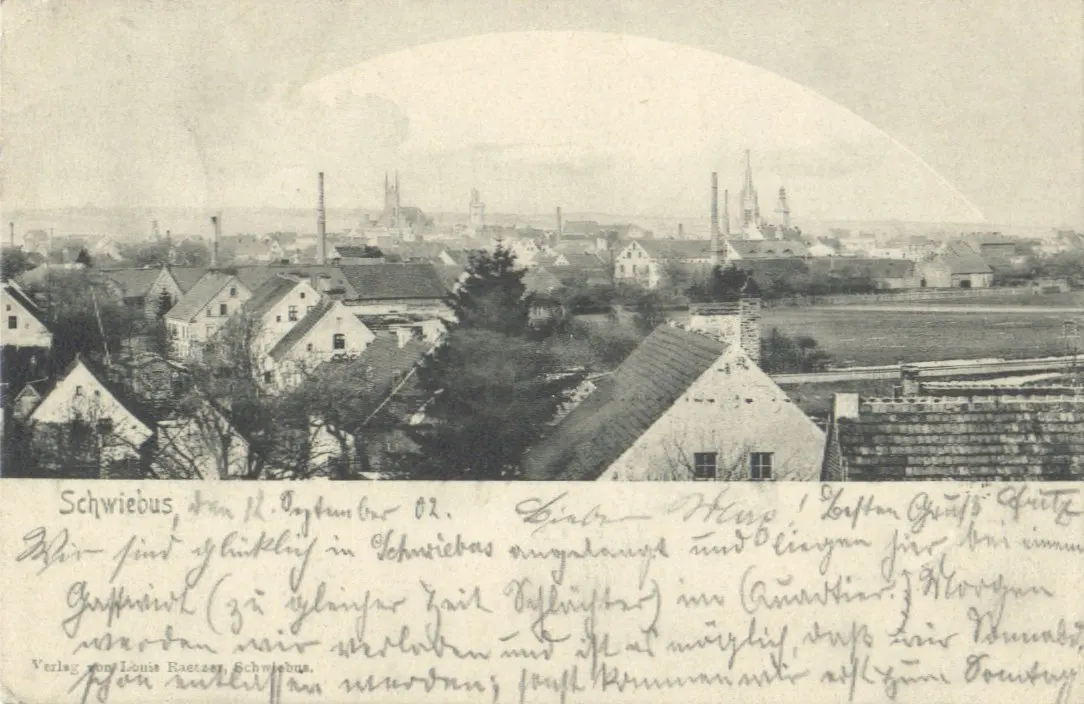 Schwiebus, den 12. September 02. Lieber Max! Besten Gruß Fritz
Wir sind glücklich in Schwiebus angelangt und liegen hier bei einem
Gastwirt (zu gleicher Zeit Schlächter) im Quartier. Morgen
werden wir verladen und ist es möglich, daß wir Sonnab.
Verlag von Louis Raetzer, Schwiebus.
schon entlassen werden; sonst kommen wir erst zum Sonntag